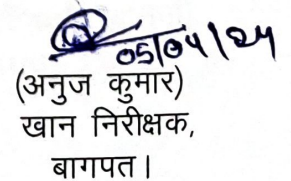 05/04/24
(अनुज कुमार)
खान निरीक्षक,
बागपत।